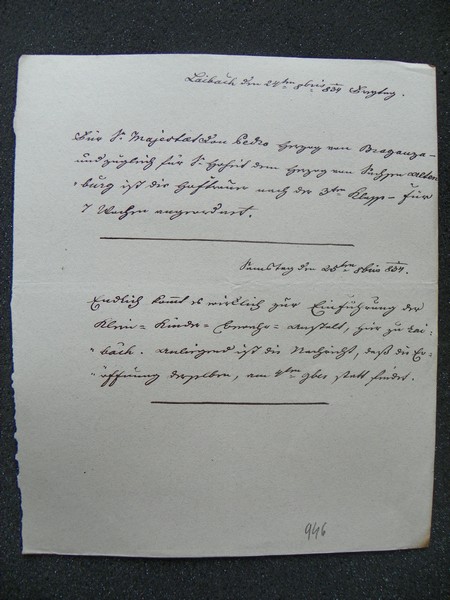 Laibach den 24ten 8bris 834 Freytag.
Für Sr Majestæt Don Pedro Herzog von Braganza
und zugleich für Sr Hoheit dem Herzog von Sachsen Alten
burg ist die Hoftrauer nach der 3ten Klasse für
7 Wochen angeordnet.
Samstag den 25ten 8bris 834.
Endlich kommt es wirklich zur Einführung der
Klein=Kinder=bewahr=anstalt, hier zu Lai=
bach. anliegend ist die Nachricht, daß die Er=
öffnung derselben, am 4ten 9bris statt findet.
946